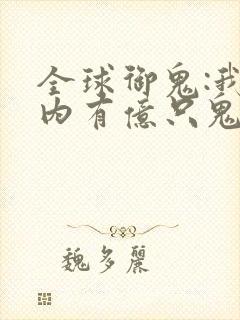 全球御鬼:我
内有億只鬼
魏多麗